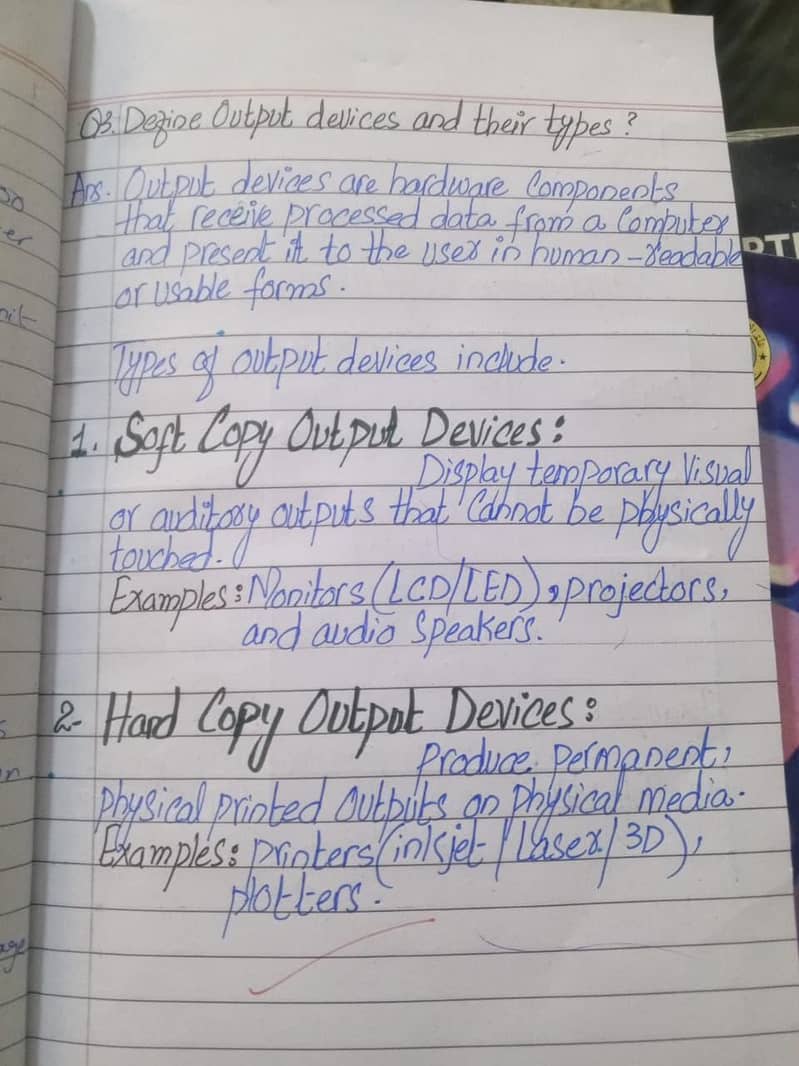 Q3. Define Output devices and their types?
Ans. Output devices are hardware Components
that receive processed data from a Computer
and present it to the user in human-readable
or usable forms.
Types of output devices include.
1. Soft Copy Output Devices:
Display temporary Visual
or auditory outputs that Cannot be physically
touched.
Examples: Monitors (LCD/LED), projectors,
and audio Speakers.
2- Hard Copy Output Devices:
Produce permanent,
physical printed Outputs on physical media.
Examples: printers (inkjet / Laser / 3D),
plotters.